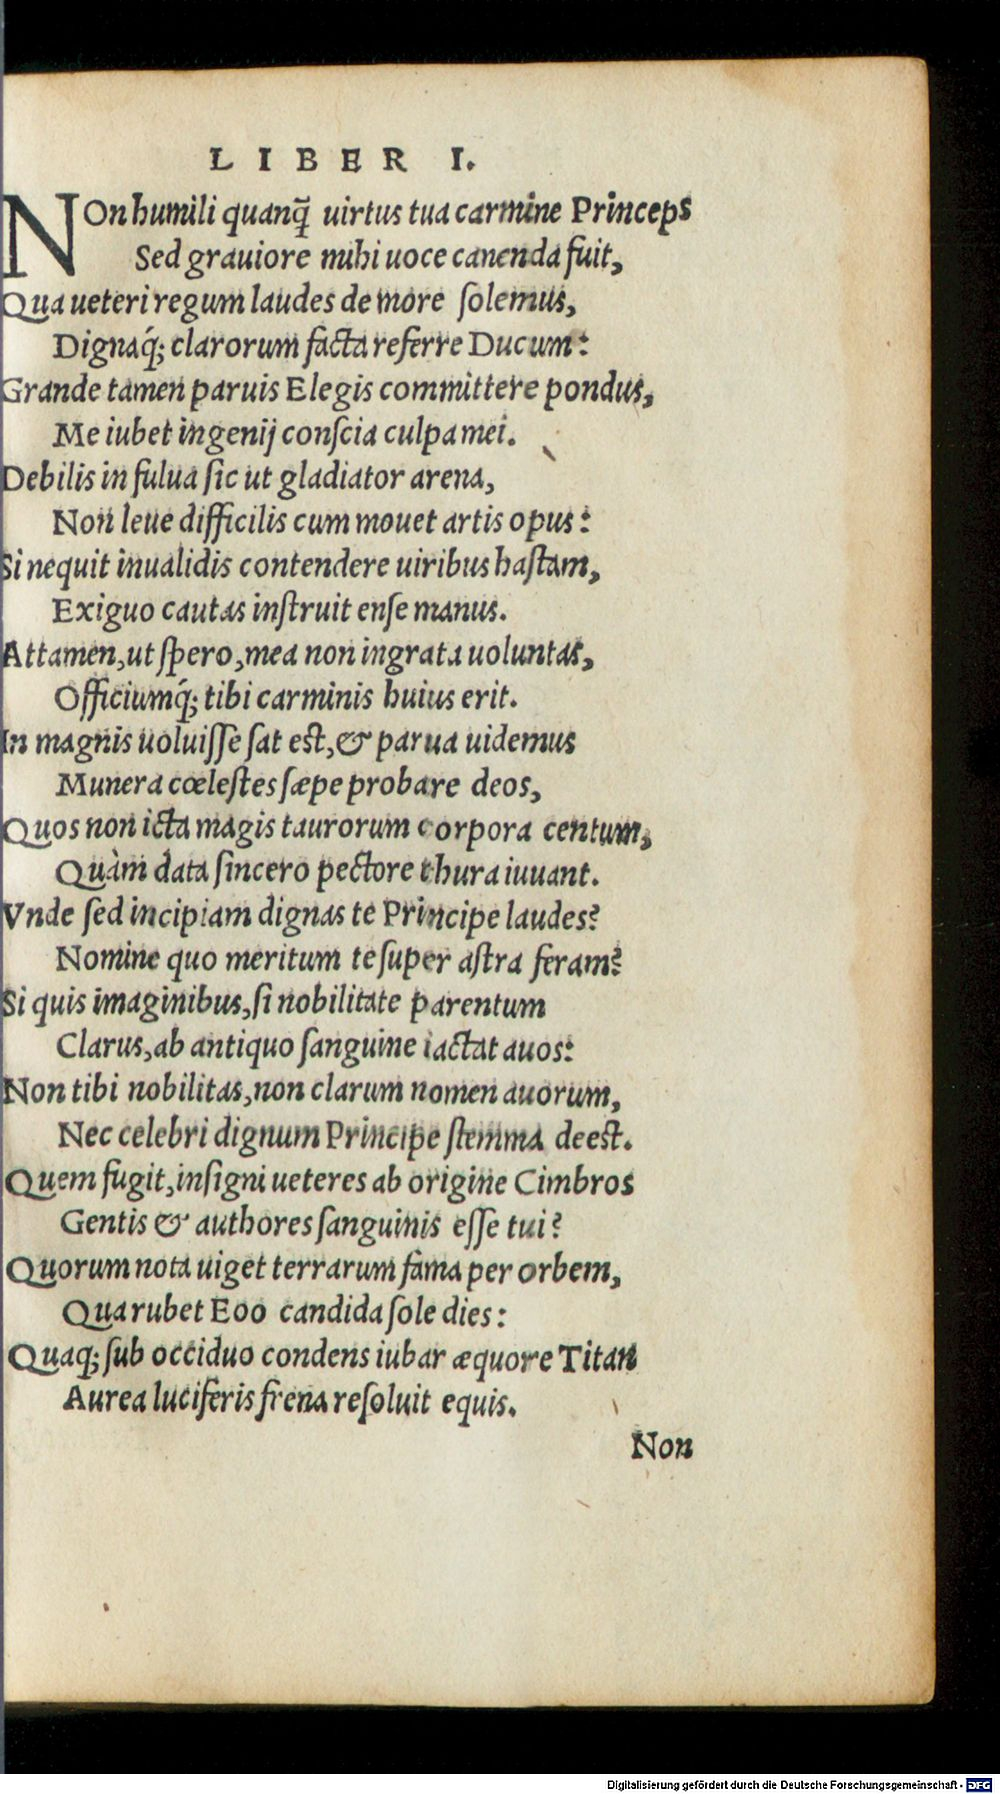 LIBER I.
NOn humili quanq̃ uirtus tua carmine Princeps
Sed grauiore mihi uoce canenda fuit,
Qua ueteri regum laudes de more solemus,
Dignaq́; clarorum facta referre Ducum:
Grande tamen paruis Elegis committere pondus,
Me iubet ingenij conscia culpa mei.
Debilis in fulua sic ut gladiator arena,
Non leue difficilis cum mouet artis opus:
Si nequit inualidis contendere uiribus hastam,
Exiguo cautas instruit ense manus.
Attamen, ut spero, mea non ingrata uoluntas,
Officiumq́; tibi carminis huius erit.
In magnis uoluisse sat est, & parua uidemus
Munera cœlestes sæpe probare deos,
Quos non icta magis taurorum corpora centum,
Quàm data sincero pectore thura iuuant.
Vnde sed incipiam dignas te Principe laudes?
Nomine quo meritum te super astra feram?
Si quis imaginibus, si nobilitate parentum
Clarus, ab antiquo sanguine iactat auos:
Non tibi nobilitas, non clarum nomen auorum,
Nec celebri dignum Principe stemma deest.
Quem fugit, insigni ueteres ab origine Cimbros
Gentis & authores sanguinis esse tui?
Quorum nota uiget terrarum fama per orbem,
Qua rubet Eoo candida sole dies:
Quaq; sub occiduo condens iubar æquore Titan
Aurea luciferis frena resoluit equis.
Non
Digitalisierung gefördert durch die Deutsche Forschungsgemeinschaft - DFG